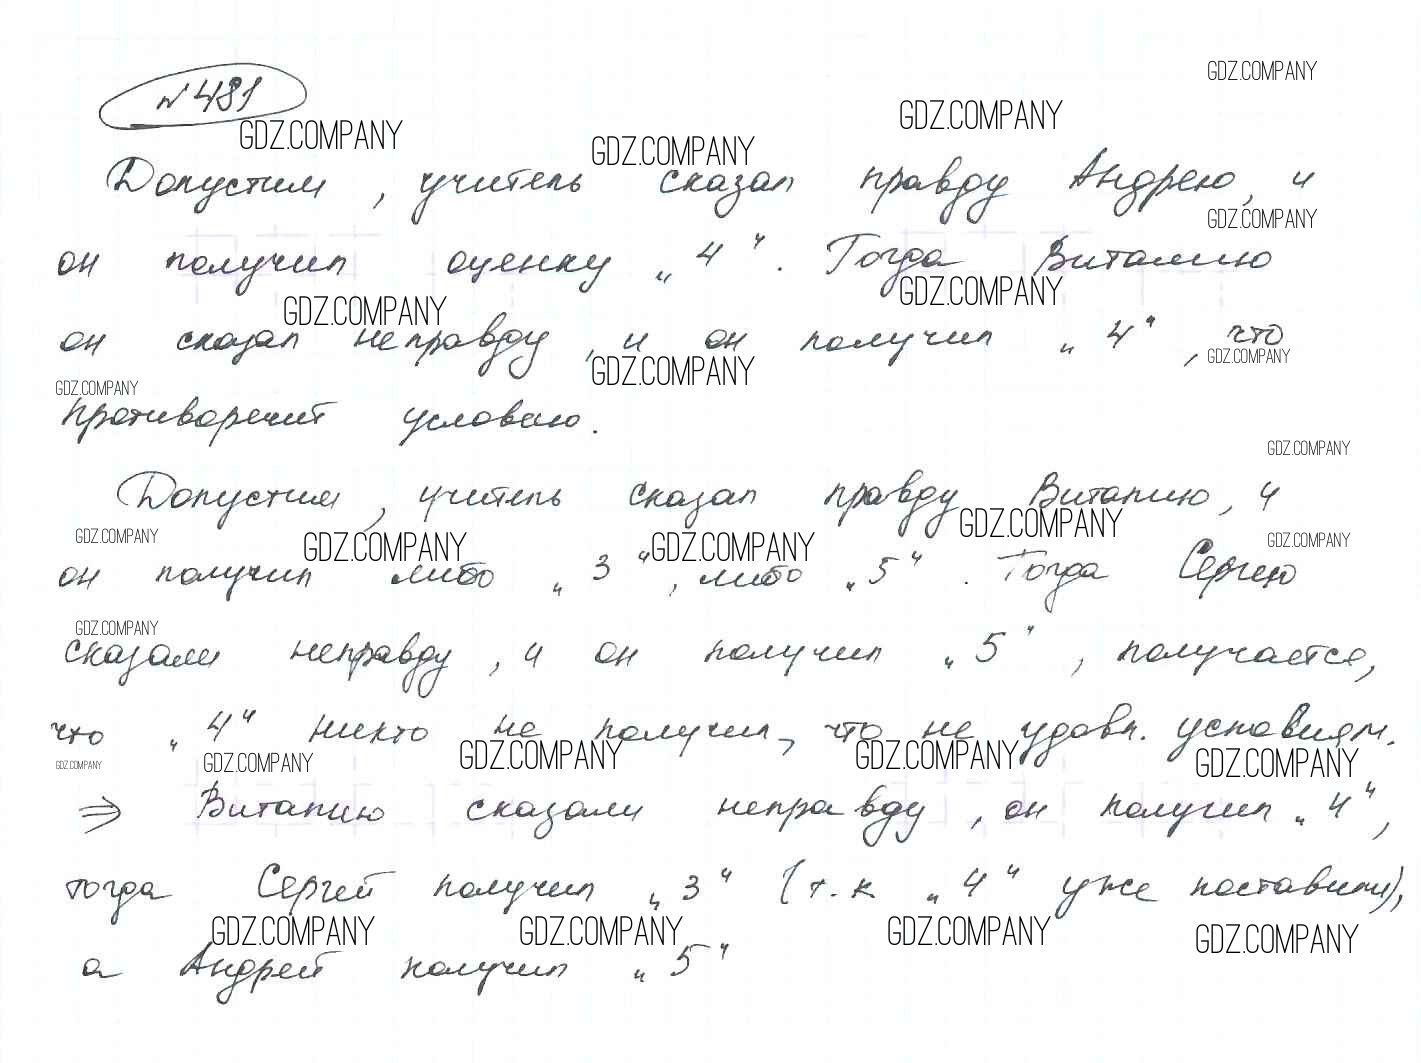 № 481
GDZ.COMPANY
GDZ.COMPANY
GDZ.COMPANY
GDZ.COMPANY
Допустим, учитель сказал правду Андрею, и
GDZ.COMPANY
он получил оценку „4“. Тогда Виталию
GDZ.COMPANY
GDZ.COMPANY
он сказал неправду, и он получил „4“, что
GDZ.COMPANY
GDZ.COMPANY
GDZ.COMPANY
противоречит условию.
GDZ.COMPANY
Допустим, учитель сказал правду Виталию, и
GDZ.COMPANY
GDZ.COMPANY
GDZ.COMPANY
GDZ.COMPANY
GDZ.COMPANY
он получил либо „3“, либо „5“. Тогда Сергею
GDZ.COMPANY
сказали неправду, и он получил „5“, получается,
что „4“ никто не получил, что не удовл. условиям.
GDZ.COMPANY
GDZ.COMPANY
GDZ.COMPANY
GDZ.COMPANY
GDZ.COMPANY
⇒ Виталию сказали неправду, он получил „4“,
тогда Сергей получил „3“ (т.к „4“ уже поставили),
GDZ.COMPANY
GDZ.COMPANY
GDZ.COMPANY
GDZ.COMPANY
а Андрей получил „5“